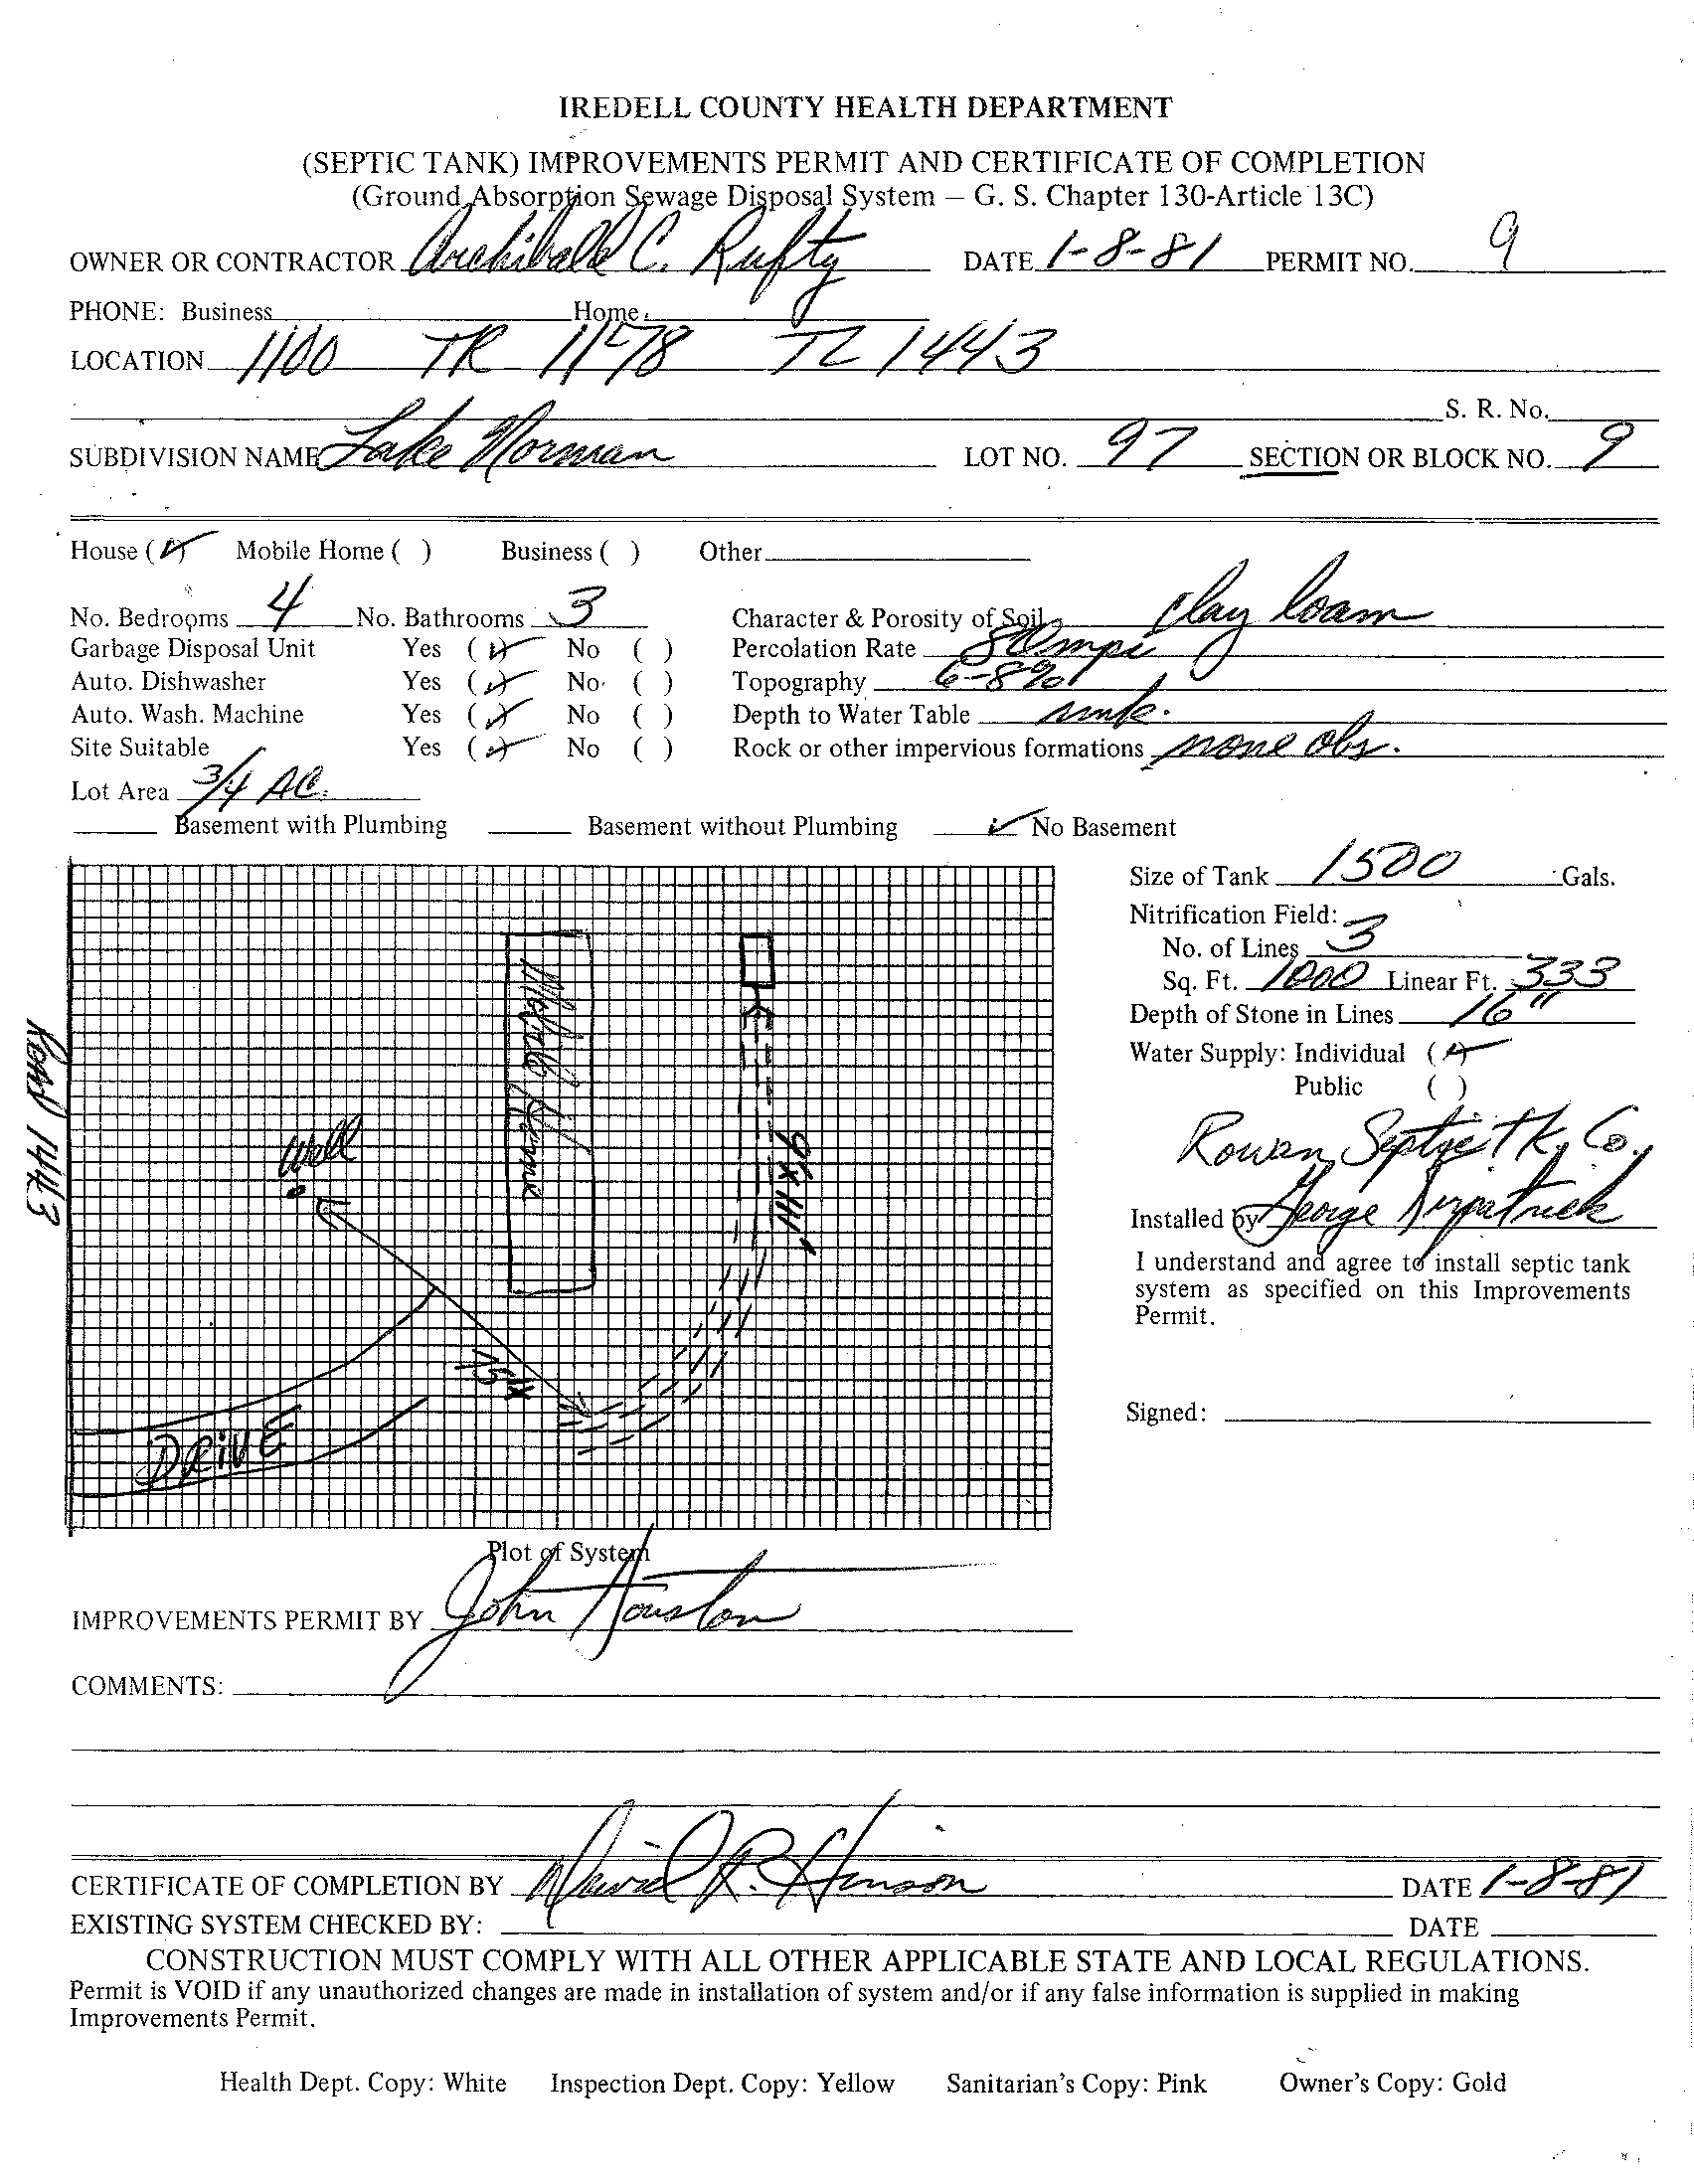 IREDELL COUNTY HEALTH DEPARTMENT
(SEPTIC TANK) IMPROVEMENTS PERMIT AND CERTIFICATE OF COMPLETION
(Ground Absorption Sewage Disposal System — G. S. Chapter 130-Article 13C)
OWNER OR CONTRACTOR Archibald C. Rufty DATE 1-8-81 PERMIT NO. 9
PHONE: Business Home
LOCATION 1100 TR 1178 TL 1443
S. R. No.
SUBDIVISION NAME Lake Norman LOT NO. 97 SECTION OR BLOCK NO. 9
House (✓) Mobile Home ( ) Business ( ) Other
No. Bedrooms 4 No. Bathrooms 3 Character & Porosity of Soil clay loam
Garbage Disposal Unit Yes (✓) No ( ) Percolation Rate 50 mpi
Auto. Dishwasher Yes (✓) No ( ) Topography 6-8%
Auto. Wash. Machine Yes (✓) No ( ) Depth to Water Table unk.
Site Suitable Yes (✓) No ( ) Rock or other impervious formations none obs.
Lot Area 3/4 AC.
Basement with Plumbing Basement without Plumbing ✓ No Basement
Size of Tank 1500 Gals.
Nitrification Field:
No. of Lines 3
Sq. Ft. 1000 Linear Ft. 333
Depth of Stone in Lines 16"
Water Supply: Individual (✓)
Public ( )
Rowan Septic Tk. Co.
Installed by George Kirpatrick
I understand and agree to install septic tank
system as specified on this Improvements
Permit.
Signed:
Road 1443
Well
Mobile Home
9x111'
75ft
DRIVE
Plot of System
IMPROVEMENTS PERMIT BY John Houston
COMMENTS:
CERTIFICATE OF COMPLETION BY David R. Hinson DATE 1-8-81
EXISTING SYSTEM CHECKED BY: DATE
CONSTRUCTION MUST COMPLY WITH ALL OTHER APPLICABLE STATE AND LOCAL REGULATIONS.
Permit is VOID if any unauthorized changes are made in installation of system and/or if any false information is supplied in making
Improvements Permit.
Health Dept. Copy: White Inspection Dept. Copy: Yellow Sanitarian's Copy: Pink Owner's Copy: Gold